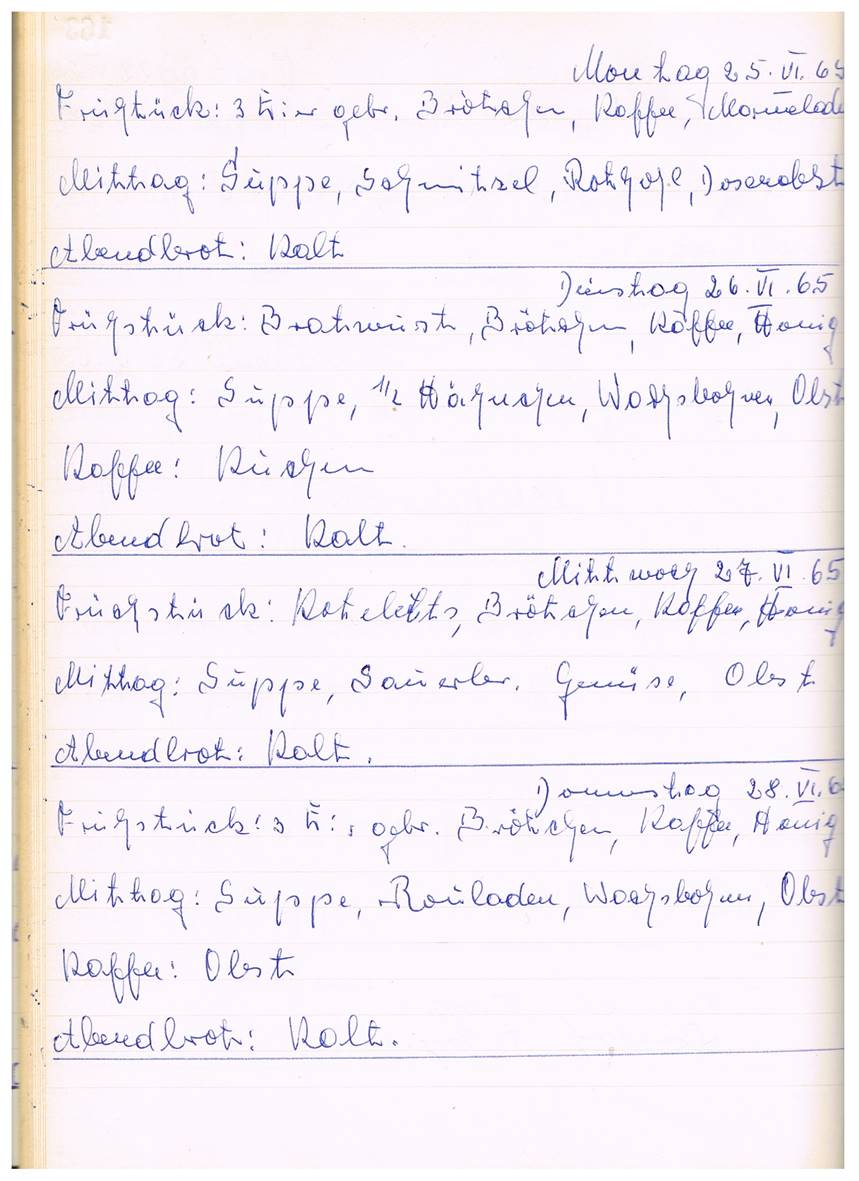 Montag 25. VI. 65
Frühstück: 3 Eier gebr. Brötchen, Kaffee, Marmelade
Mittag: Suppe, Schnitzel, Rotkohl, Dosenobst
Abendbrot: Kalt
Dienstag 26. VI. 65
Frühstück: Bratwurst, Brötchen, Kaffee, Honig
Mittag: Suppe, 1/2 Hähnchen, Wachsbohnen, Obst
Kaffee: Kuchen
Abendbrot: Kalt.
Mittwoch 27. VI. 65
Frühstück: Koteletts, Brötchen, Kaffee, Honig
Mittag: Suppe, Sauerbr. Gemüse, Obst
Abendbrot: Kalt.
Donnerstag 28. VI. 6
Frühstück: 3 Eier gebr. Brötchen, Kaffee, Honig
Mittag: Suppe, Rouladen, Wachsbohnen, Obst
Kaffee: Obst
Abendbrot: Kalt.